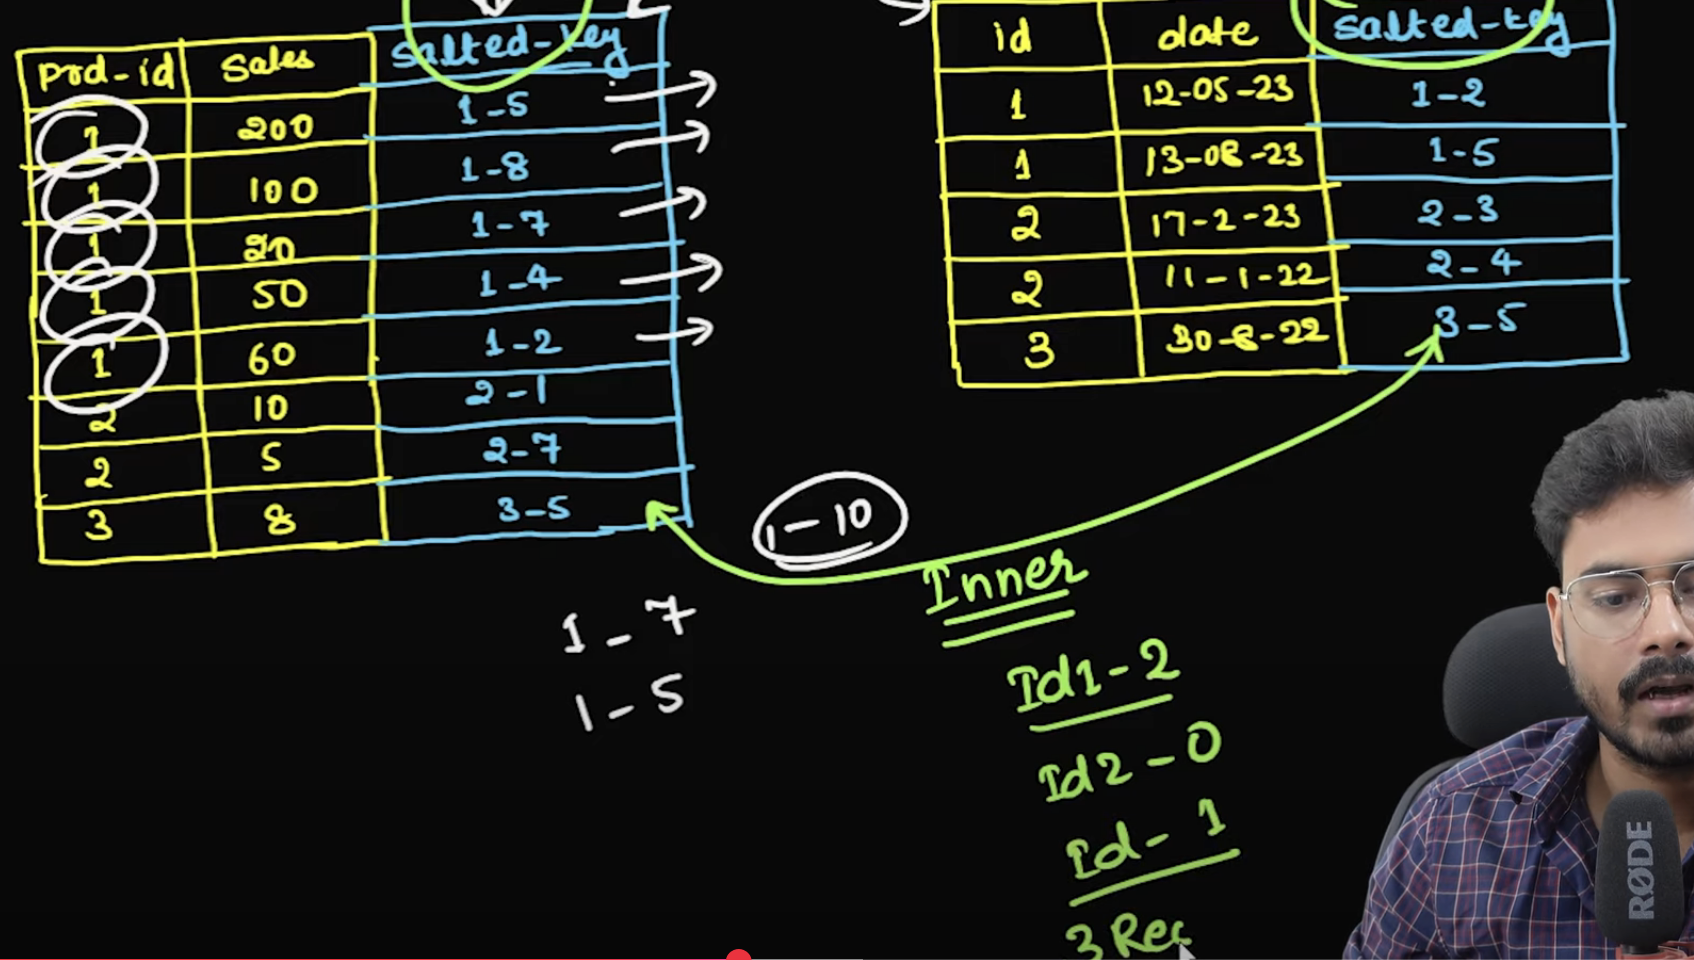 prd-id Sales salted-key
1 200 1-5
1 100 1-8
1 20 1-7
1 50 1-4
1 60 1-2
2 10 2-1
2 5 2-7
3 8 3-5
id date salted-key
1 12-05-23 1-2
1 13-08-23 1-5
2 17-2-23 2-3
2 11-1-22 2-4
3 30-8-22 3-5
1-10
1-7
1-5
Inner
Id1-2
Id2-0
Id-1
3 Rec
RØDE